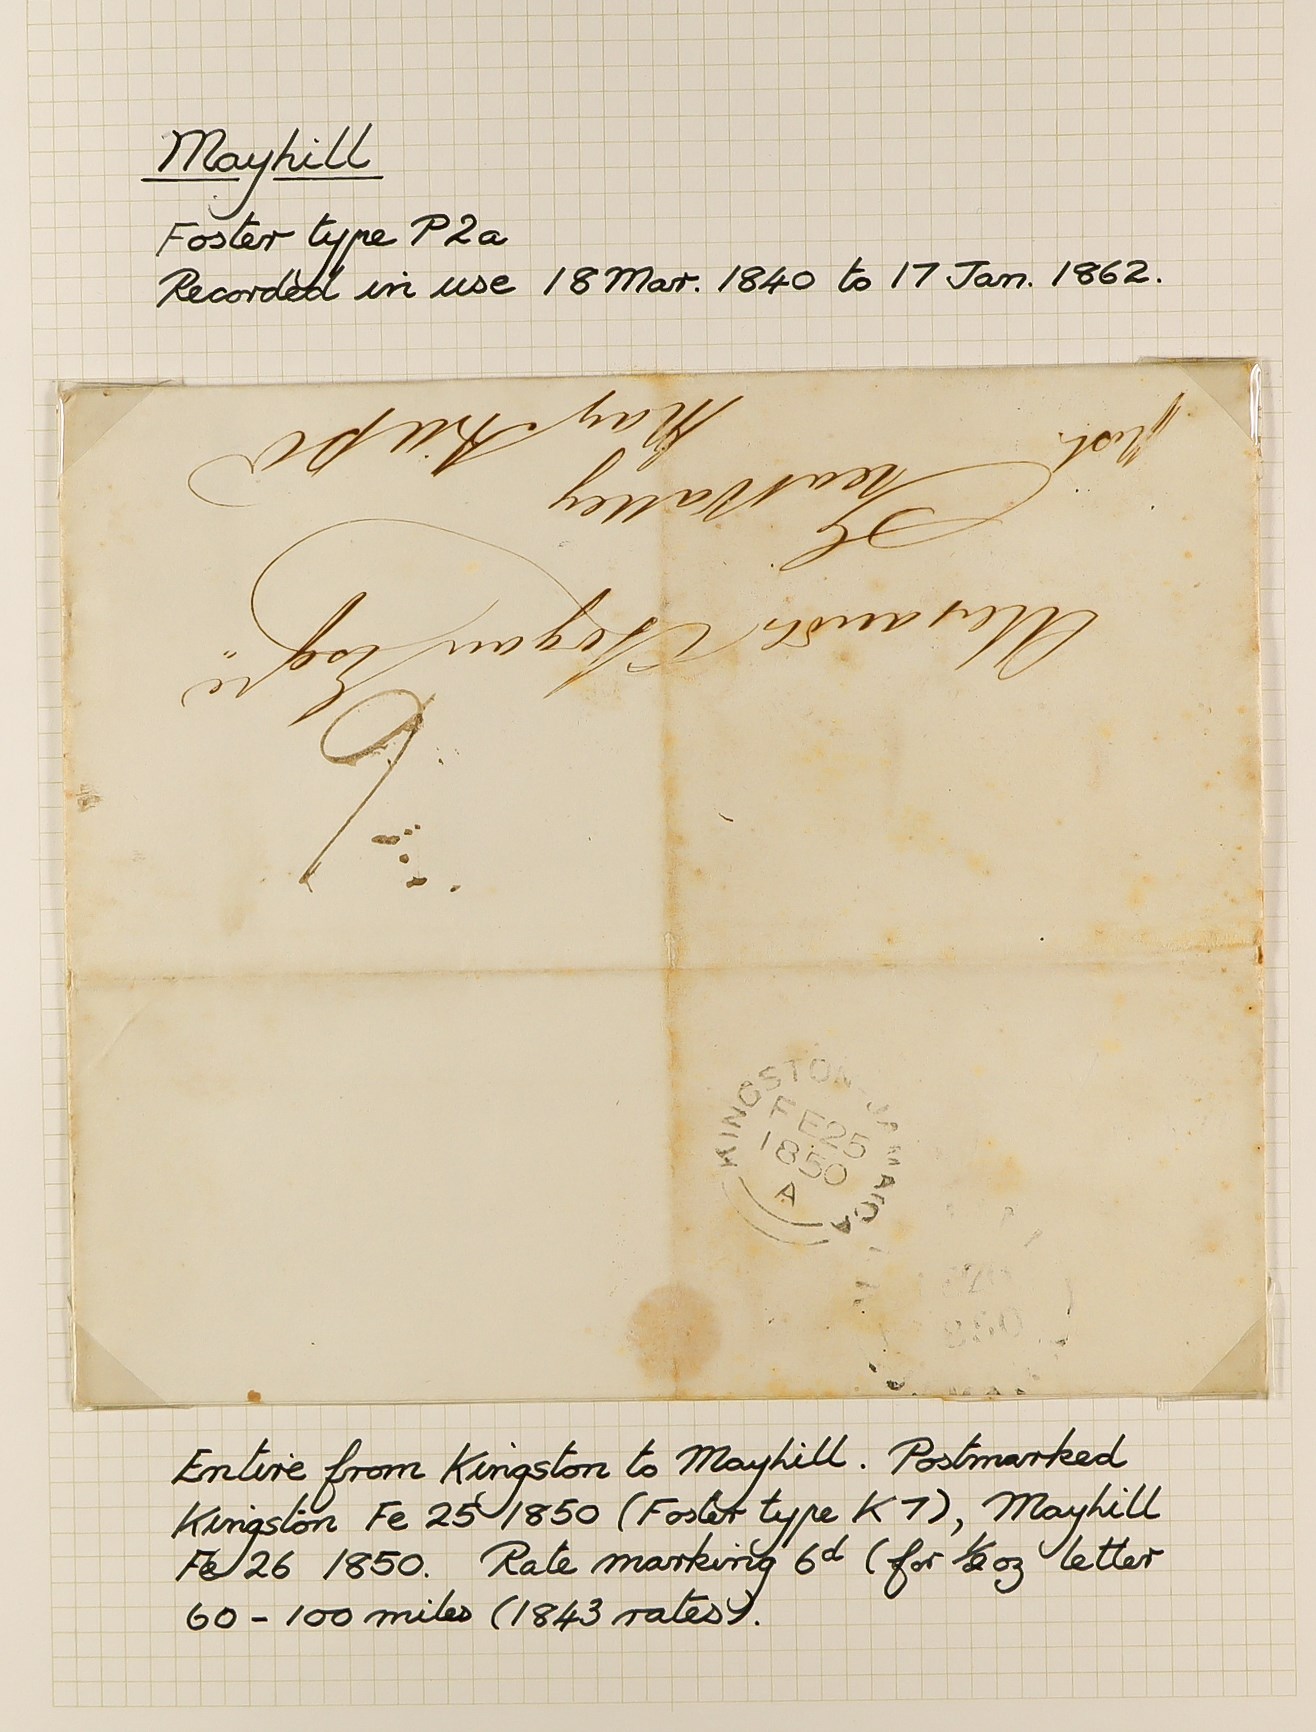 Mayhill
Foster type P2a
Recorded in use 18 Mar. 1840 to 17 Jan. 1862.
Alexander Esqre
Valley
May Hill PO
6
KINGSTON-JAMAICA
FE 25
1850
A
Entire from Kingston to Mayhill. Postmarked
Kingston Fe 25 1850 (Foster type K7), Mayhill
Fe 26 1850. Rate marking 6d (for ½ oz letter
60 - 100 miles (1843 rates).